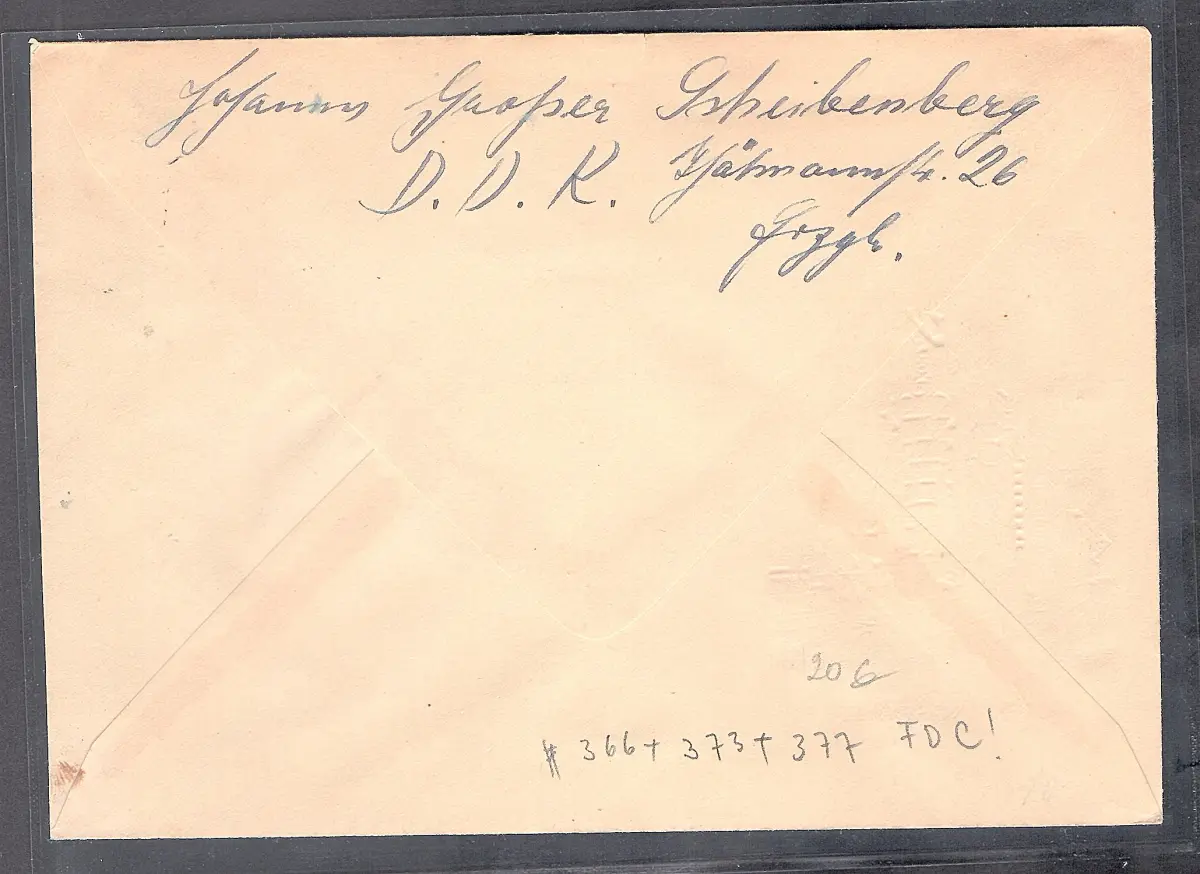 Johannes Großer Scheibenberg
D. D. R. Thälmannstr. 26
Erzgb.
20
# 366 + 373 + 377 FDC!